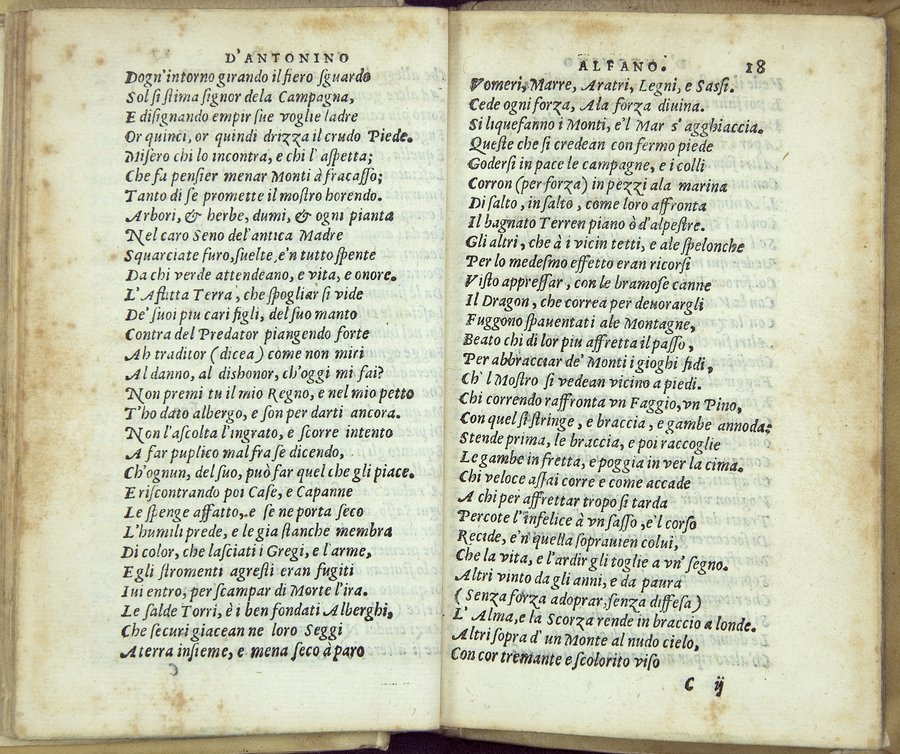 D'ANTONINO
Dogn'intorno girando il fiero sguardo
Sol si stima signor dela Campagna,
E disignando empir sue voglie ladre
Or quinci, or quindi drizza il crudo Piede.
Misero chi lo incontra, e chi l'aspetta;
Che fa pensier menar Monti à fracasso;
Tanto di se promette il mostro horendo.
Arbori, & herbe, dumi, & ogni pianta
Nel caro Seno del'antica Madre
Squarciate furo, suelte, e'n tutto spente
Da chi verde attendeano, e vita, e onore.
L'Aflitta Terra, che spogliar si vide
De' suoi piu cari figli, del suo manto
Contra del Predator piangendo forte
Ah traditor (dicea) come non miri
Al danno, al dishonor, ch'oggi mi fai?
Non premi tu il mio Regno, e nel mio petto
T'ho dato albergo, e son per darti ancora.
Non l'ascolta l'ingrato, e scorre intento
A far puplico mal fra se dicendo,
Ch'ognun, del suo, può far quel che gli piace.
E riscontrando poi Case, e Capanne
Le spenge affatto, e se ne porta seco
L'humili prede, e le gia stanche membra
Di color, che lasciati i Gregi, e l'arme,
E gli stromenti agresti eran fugiti
Iui entro, per scampar di Morte l'ira.
Le salde Torri, è i ben fondati Alberghi,
Che securi giacean ne loro Seggi
A terra insieme, e mena seco à paro
C
ALFANO. 18
Vomeri, Marre, Aratri, Legni, e Sassi.
Cede ogni forza, A la forza diuina.
Si liquefanno i Monti, e'l Mar s'agghiaccia.
Queste che si credean con fermo piede
Godersi in pace le campagne, e i colli
Corron (per forza) in pezzi ala marina
Di salto, in salto, come loro affronta
Il bagnato Terren piano ò d'alpestre.
Gli altri, che à i vicin tetti, e ale spelonche
Per lo medesmo effetto eran ricorsi
Visto appressar, con le bramose canne
Il Dragon, che correa per deuorargli
Fuggono spauentati ale Montagne,
Beato chi di lor piu affretta il passo,
Per abbracciar de' Monti i gioghi fidi,
Ch'l Mostro si vedean vicino a piedi.
Chi correndo raffronta vn Faggio, vn Pino,
Con quel si stringe, e braccia, e gambe annoda:
Stende prima, le braccia, e poi raccoglie
Le gambe in fretta, e poggia in ver la cima.
Chi veloce assai corre e come accade
A chi per affrettar tropo si tarda
Percote l'infelice à vn sasso, e'l corso
Recide, e'n quella soprauien colui,
Che la vita, e l'ardir gli toglie a vn' segno.
Altri vinto da gli anni, e da paura
(Senza forza adoprar, senza diffesa)
L'Alma, e la Scorza rende in braccio a londe.
Altri sopra d'un Monte al nudo cielo,
Con cor tremante e scolorito viso
C ij